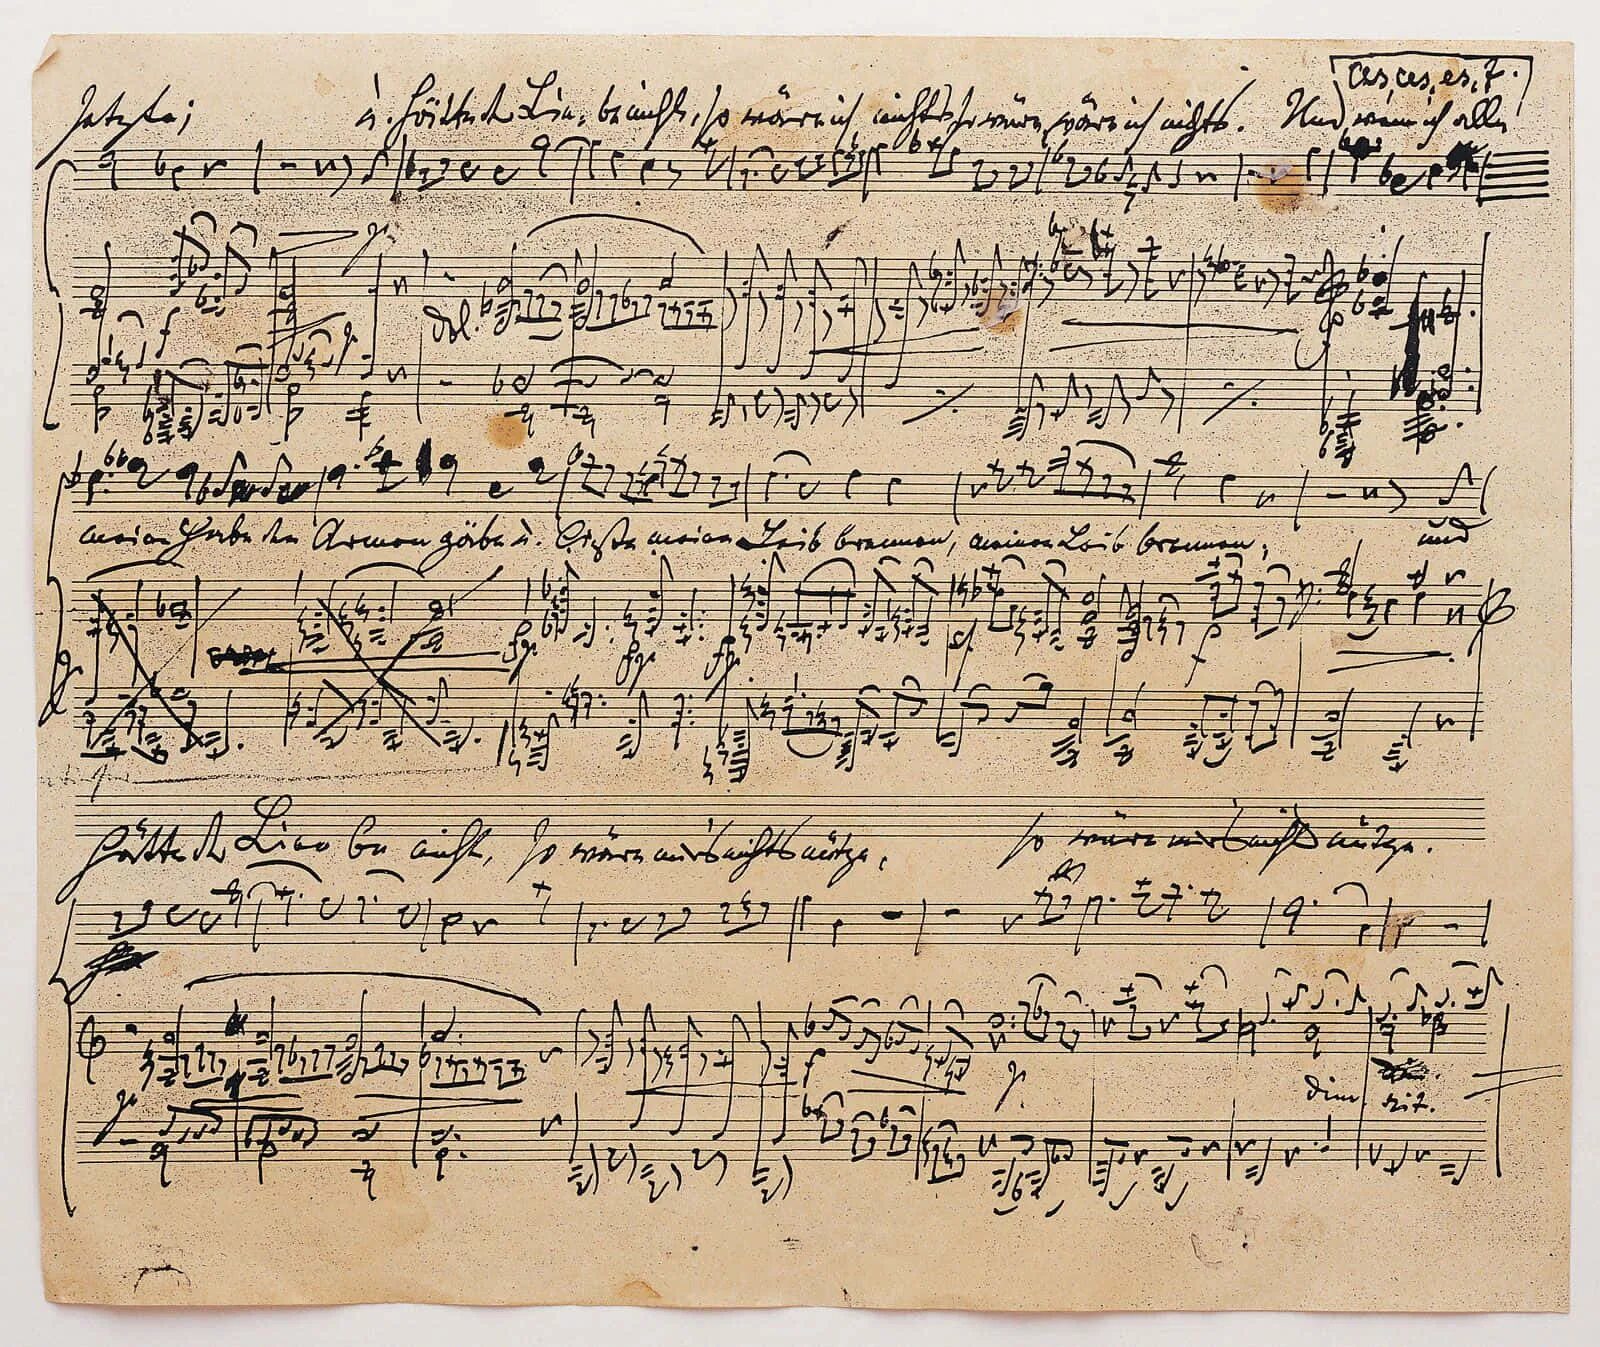 ces, ces, es, f.
setzte; u. hätte der Liebe nicht, so wäre ich nichts, so wäre, wäre ich nichts. Und wenn ich alle
dol.
meine Habe den Armen gäbe u. ließe meinen Leib brennen, meinen Leib brennen; und
p
fp fp fp sf f
hätte der Liebe nicht, so wäre mir's nichts nütze, so wäre mir's nichts nütze.
p f p dim. rit.